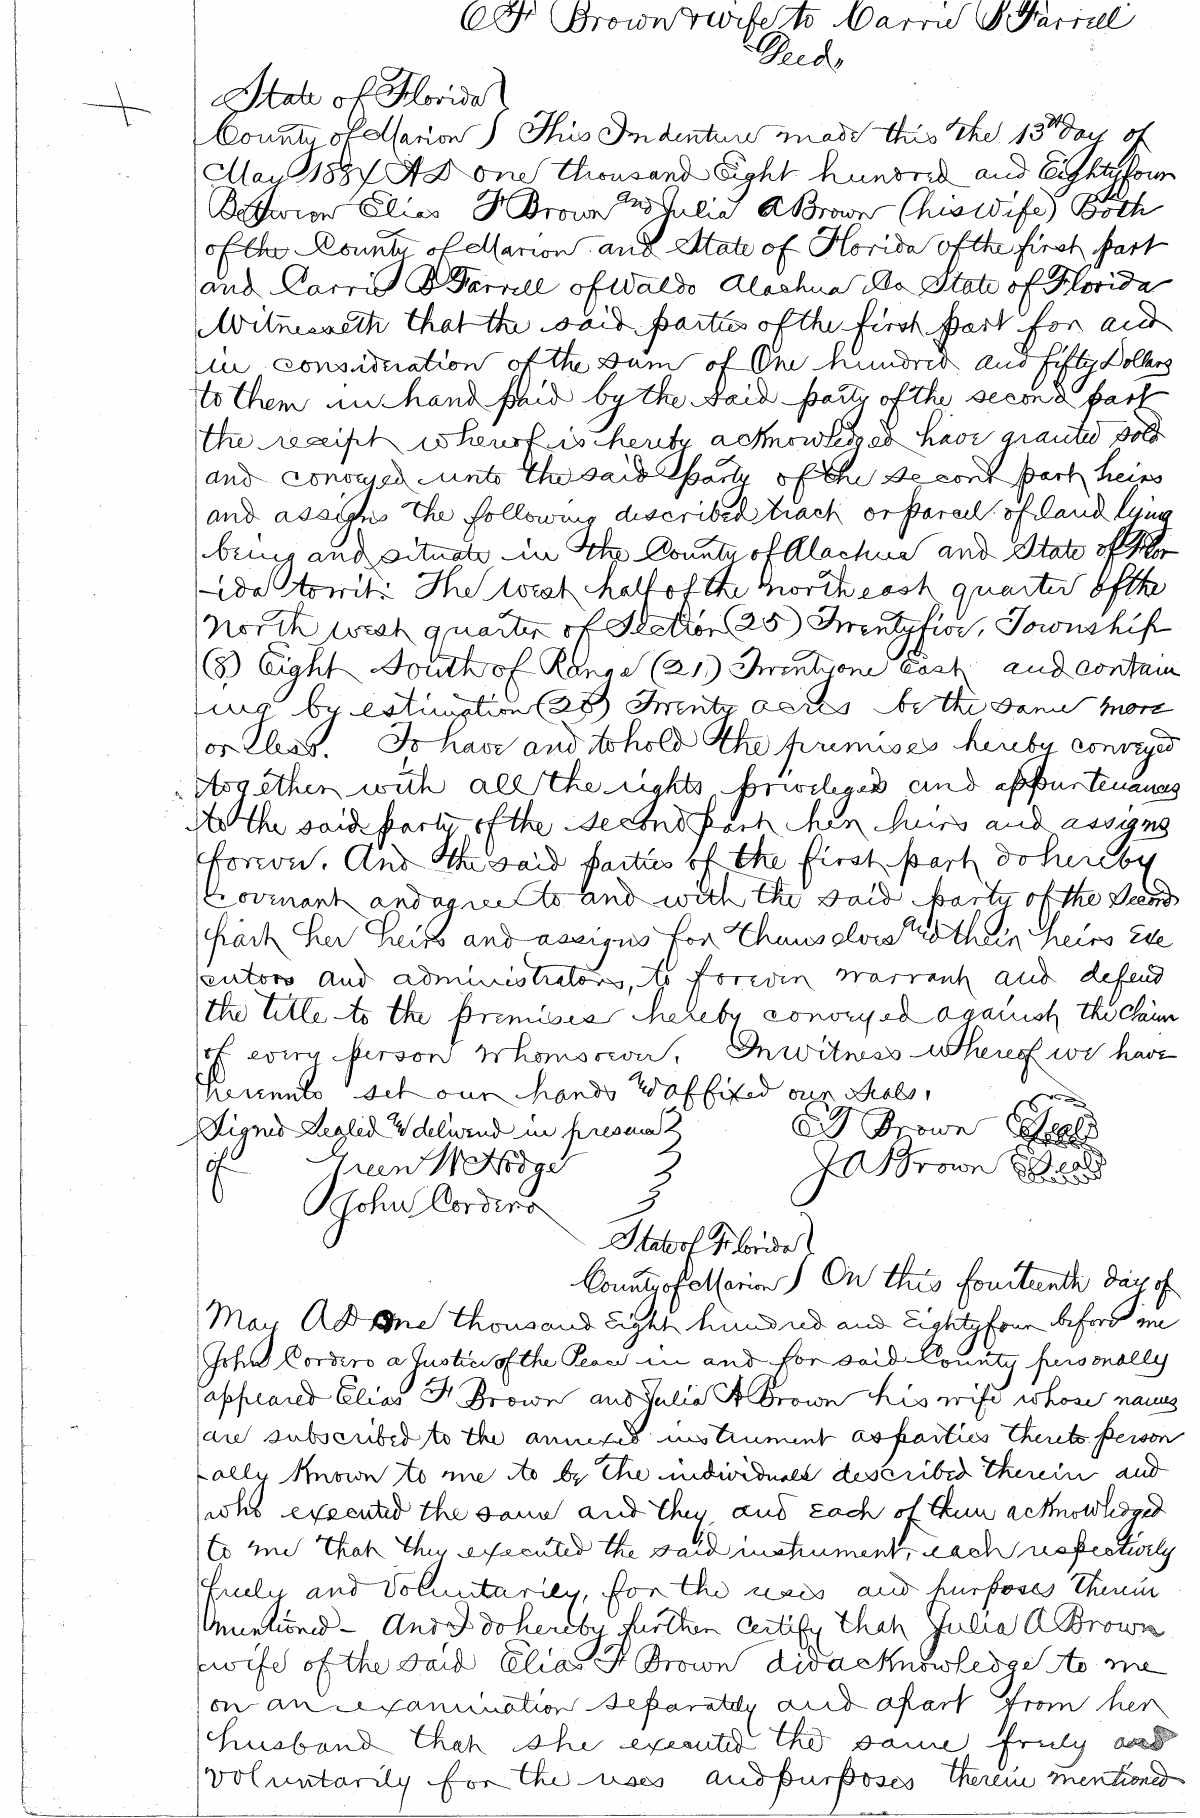 E F Brown & wife to Carrie B Farrell
Deed,
State of Florida
County of Marion This Indenture made this the 13th day of
May 1884 AD one thousand Eight hundred and Eightyfour
Between Elias F Brown and Julia A Brown (his wife) Both
of the County of Marion and State of Florida of the first part
and Carrie B Farrell of Waldo Alachua Co State of Florida
Witnesseth that the said parties of the first part for and
in consideration of the sum of One hundred and fifty Dollars
to them in hand paid by the said party of the second part
the receipt whereof is hereby acknowledged have granted sold
and conveyed unto the said party of the second part heirs
and assigns the following described tract or parcel of land lying
being and situate in the County of Alachua and State of Flor
-ida towit: The west half of the north east quarter of the
North west quarter of Section (25) Twentyfive, Township
(8) Eight South of Range (21) Twentyone East and contain
ing by estimation (20) Twenty acres be the same more
or less. To have and to hold the premises hereby conveyed
together with all the rights privileges and appurtenances
to the said party of the second part her heirs and assigns
forever. And the said parties of the first part do hereby
covenant and agree to and with the said party of the Second
part her heirs and assigns for themselves and their heirs Exe
cutors and administrators, to forever warrant and defend
the title to the premises hereby conveyed against the claim
of every person whomsoever. In witness whereof we have
hereunto set our hands and affixed our seals.
Signed Sealed & delivered in presence E F Brown Seal
of Green W Hodge J A Brown Seal
John Cordero
State of Florida
County of Marion On this fourteenth day of
May AD One thousand Eight hundred and Eightyfour before me
John Cordero a Justice of the Peace in and for said County personally
appeared Elias F Brown and Julia A Brown his wife whose names
are subscribed to the annexed instrument as parties thereto person
-ally known to me to be the individuals described therein and
who executed the same and they and each of them acknowledged
to me that they executed the said instrument, each respectively
freely and Voluntarily, for the uses and purposes therein
mentioned - And I do hereby further certify that Julia A Brown
wife of the said Elias F Brown did acknowledge to me
on an examination separately and apart from her
husband that she executed the same freely and
voluntarily for the uses and purposes therein mentioned